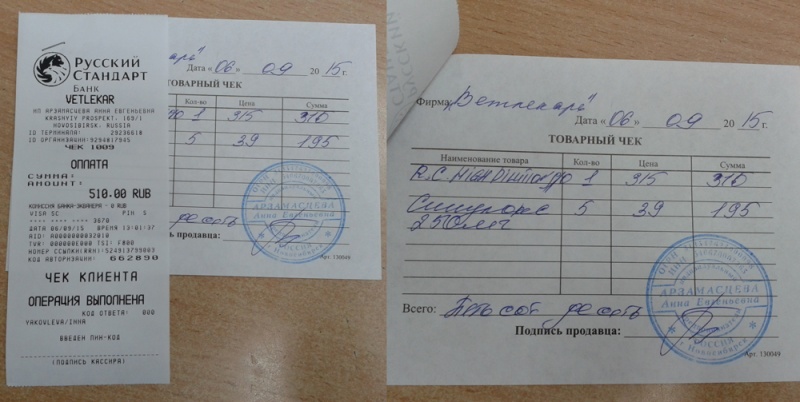 РУССКИЙ
СТАНДАРТ
БАНК
VETLEKAR
ИП АРЗАМАСЦЕВА АННА ЕВГЕНЬЕВНА
KRASNYIY PROSPEKT, 169/1
NOVOSIBIRSK, RUSSIA
ID ТЕРМИНАЛА: 29236610
ID ОРГАНИЗАЦИИ:9294017945
ЧЕК 1009
ОПЛАТА
СУММА:
AMOUNT:
510.00 RUB
КОМИССИЯ БАНКА-ЭКВАЙЕРА - 0 RUB
VISA SC PIN
**** **** **** 3878
ДАТА 06/09/15 ВРЕМЯ 13:01:37
AID: A0000000032010
TVR: 0000008E000 TSI: F800
НОМЕР ССЫЛКИ(RRN):524913799003
КОД АВТОРИЗАЦИИ: 662890
ЧЕК КЛИЕНТА
ОПЕРАЦИЯ ВЫПОЛНЕНА
КОД ОТВЕТА: 000
YAKOVLEVA/INNA
ВВЕДЕН ПИН-КОД
(ПОДПИСЬ КАССИРА)
Дата «06» 09 2015г.
ТОВАРНЫЙ ЧЕК
Кол-во Цена Сумма
1 315 310
5 39 195
АРЗАМАСЦЕВА
Анна Евгеньевна
десять
продавца:
Арт. 130049
Фирма „Ветлекарь"
Дата «06» 09 2015г.
ТОВАРНЫЙ ЧЕК
Наименование товара Кол-во Цена Сумма
R.C. 1 315 310
5 39 195
250мг
АРЗАМАСЦЕВА
Анна Евгеньевна
РОССИЯ
г. Новосибирск
Всего: Пятьсот десять
Подпись продавца:
Арт. 130049